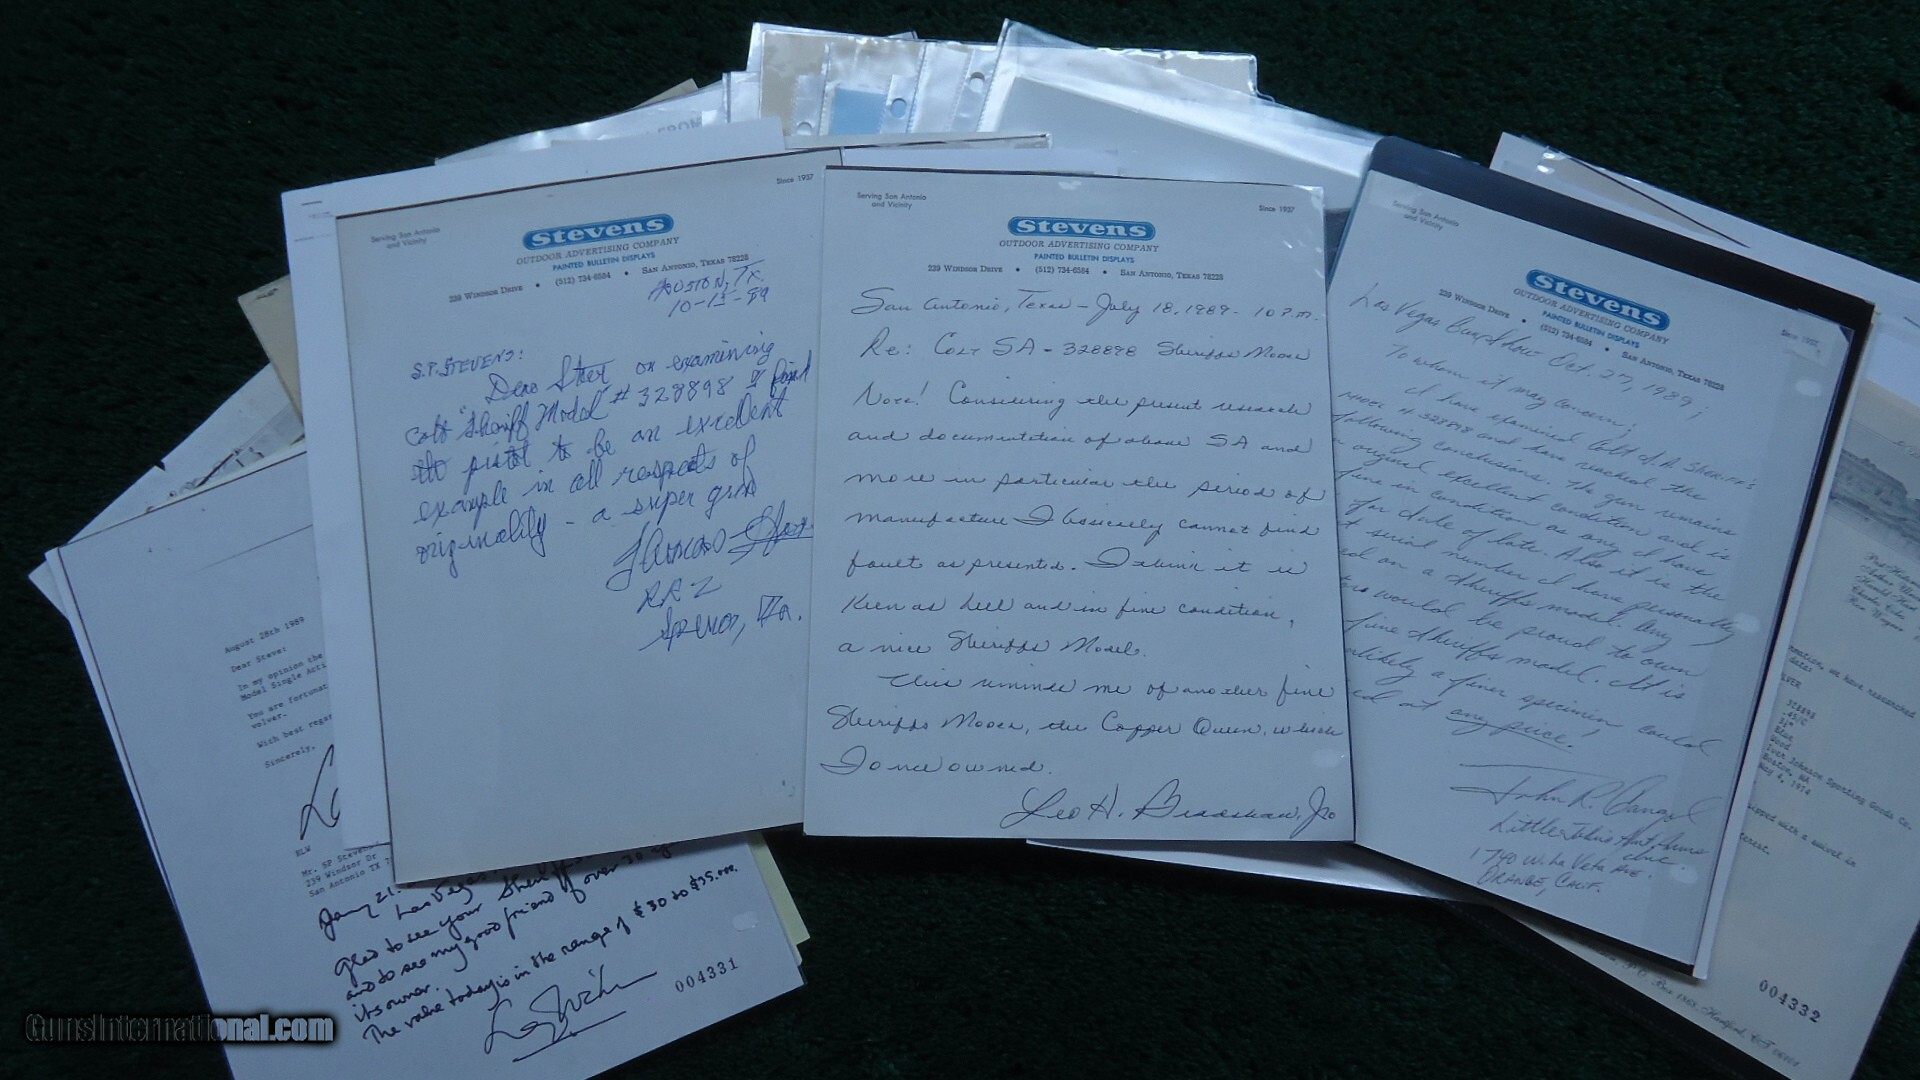 August 28th 1989
Dear Steve:
In my opinion the
Model Single Acti
You are fortunat
volver.
With best regar
Sincerely,
RLW
Mr. SP Steven
239 Windsor Dr
San Antonio TX 7
Las Vegas
glad to see your Sheriffs
and to see my good friend of over 30 y
its owner.
The value today is in the range of $30 to $35,000.
004331
Serving San Antonio
and Vicinity
Since 1937
Stevens
OUTDOOR ADVERTISING COMPANY
PAINTED BULLETIN DISPLAYS
239 WINDSOR DRIVE • (512) 734-6584 • SAN ANTONIO, TEXAS 78228
Houston, Tx.
10-15-89
S.P. STEVENS:
Dear Steve on examining
Colt "Sheriff Model" # 328898 I find
the pistol to be an excellent
example in all respects of
originality - a super gun
RR 2
Serving San Antonio
and Vicinity
Since 1937
Stevens
OUTDOOR ADVERTISING COMPANY
PAINTED BULLETIN DISPLAYS
239 WINDSOR DRIVE • (512) 734-6584 • SAN ANTONIO, TEXAS 78228
San Antonio, Texas - July 18, 1989 - 10 P.M.
Re: Colt SA - 328898 Sheriffs Model
Note! Considering the present research
and documentation of above SA and
more in particular the period of
manufacture I basically cannot find
fault as presented. I think it is
Keen as hell and in fine condition,
a nice Sheriffs Model.
This reminds me of another fine
Sheriffs Model, the Copper Queen, which
I once owned.
Leo H. Bradshaw, Jr.
Serving San Antonio
and Vicinity
Since 1937
Stevens
OUTDOOR ADVERTISING COMPANY
PAINTED BULLETIN DISPLAYS
239 WINDSOR DRIVE • (512) 734-6584 • SAN ANTONIO, TEXAS 78228
Las Vegas Gun Show Oct. 27, 1989;
To whom it may concern;
I have examined Colt S.A. Sheriff's
Model # 328898 and have reached the
following conclusions. The gun remains
original excellent condition and is
fine in condition as any I have
for date of late. Also it is the
t serial number I have personally
ed on a Sheriffs model. Any
would be proud to own
fine Sheriffs model. It is
nlikely a finer specimen could
ed at any price.
John R.
Little John's Ant. Arms
Inc.
1740 W. La Veta Ave.
Orange, Calif.
rmation, we have researched
dates
LVER
328898
.45/C
Blue
Iver Johnson Sporting Goods Co.
Boston, MA
May 4, 1974
terest.
004332
GunsInternational.com